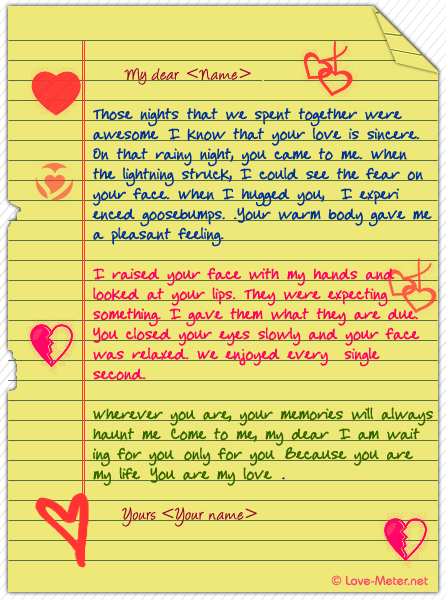 My dear <Name>
Those nights that we spent together were
awesome I know that your love is sincere.
On that rainy night, you came to me. When
the lightning struck, I could see the fear on
your face. When I hugged you, I experi
enced goosebumps. .Your warm body gave me
a pleasant feeling.
I raised your face with my hands and
looked at your lips. They were expecting
something. I gave them what they are due.
You closed your eyes slowly and your face
was relaxed. We enjoyed every single
second..
Wherever you are, your memories will always
haunt me Come to me, my dear I am wait
ing for you only for you Because you are
my life You are my love .
Yours <Your name>
© Love-Meter.net